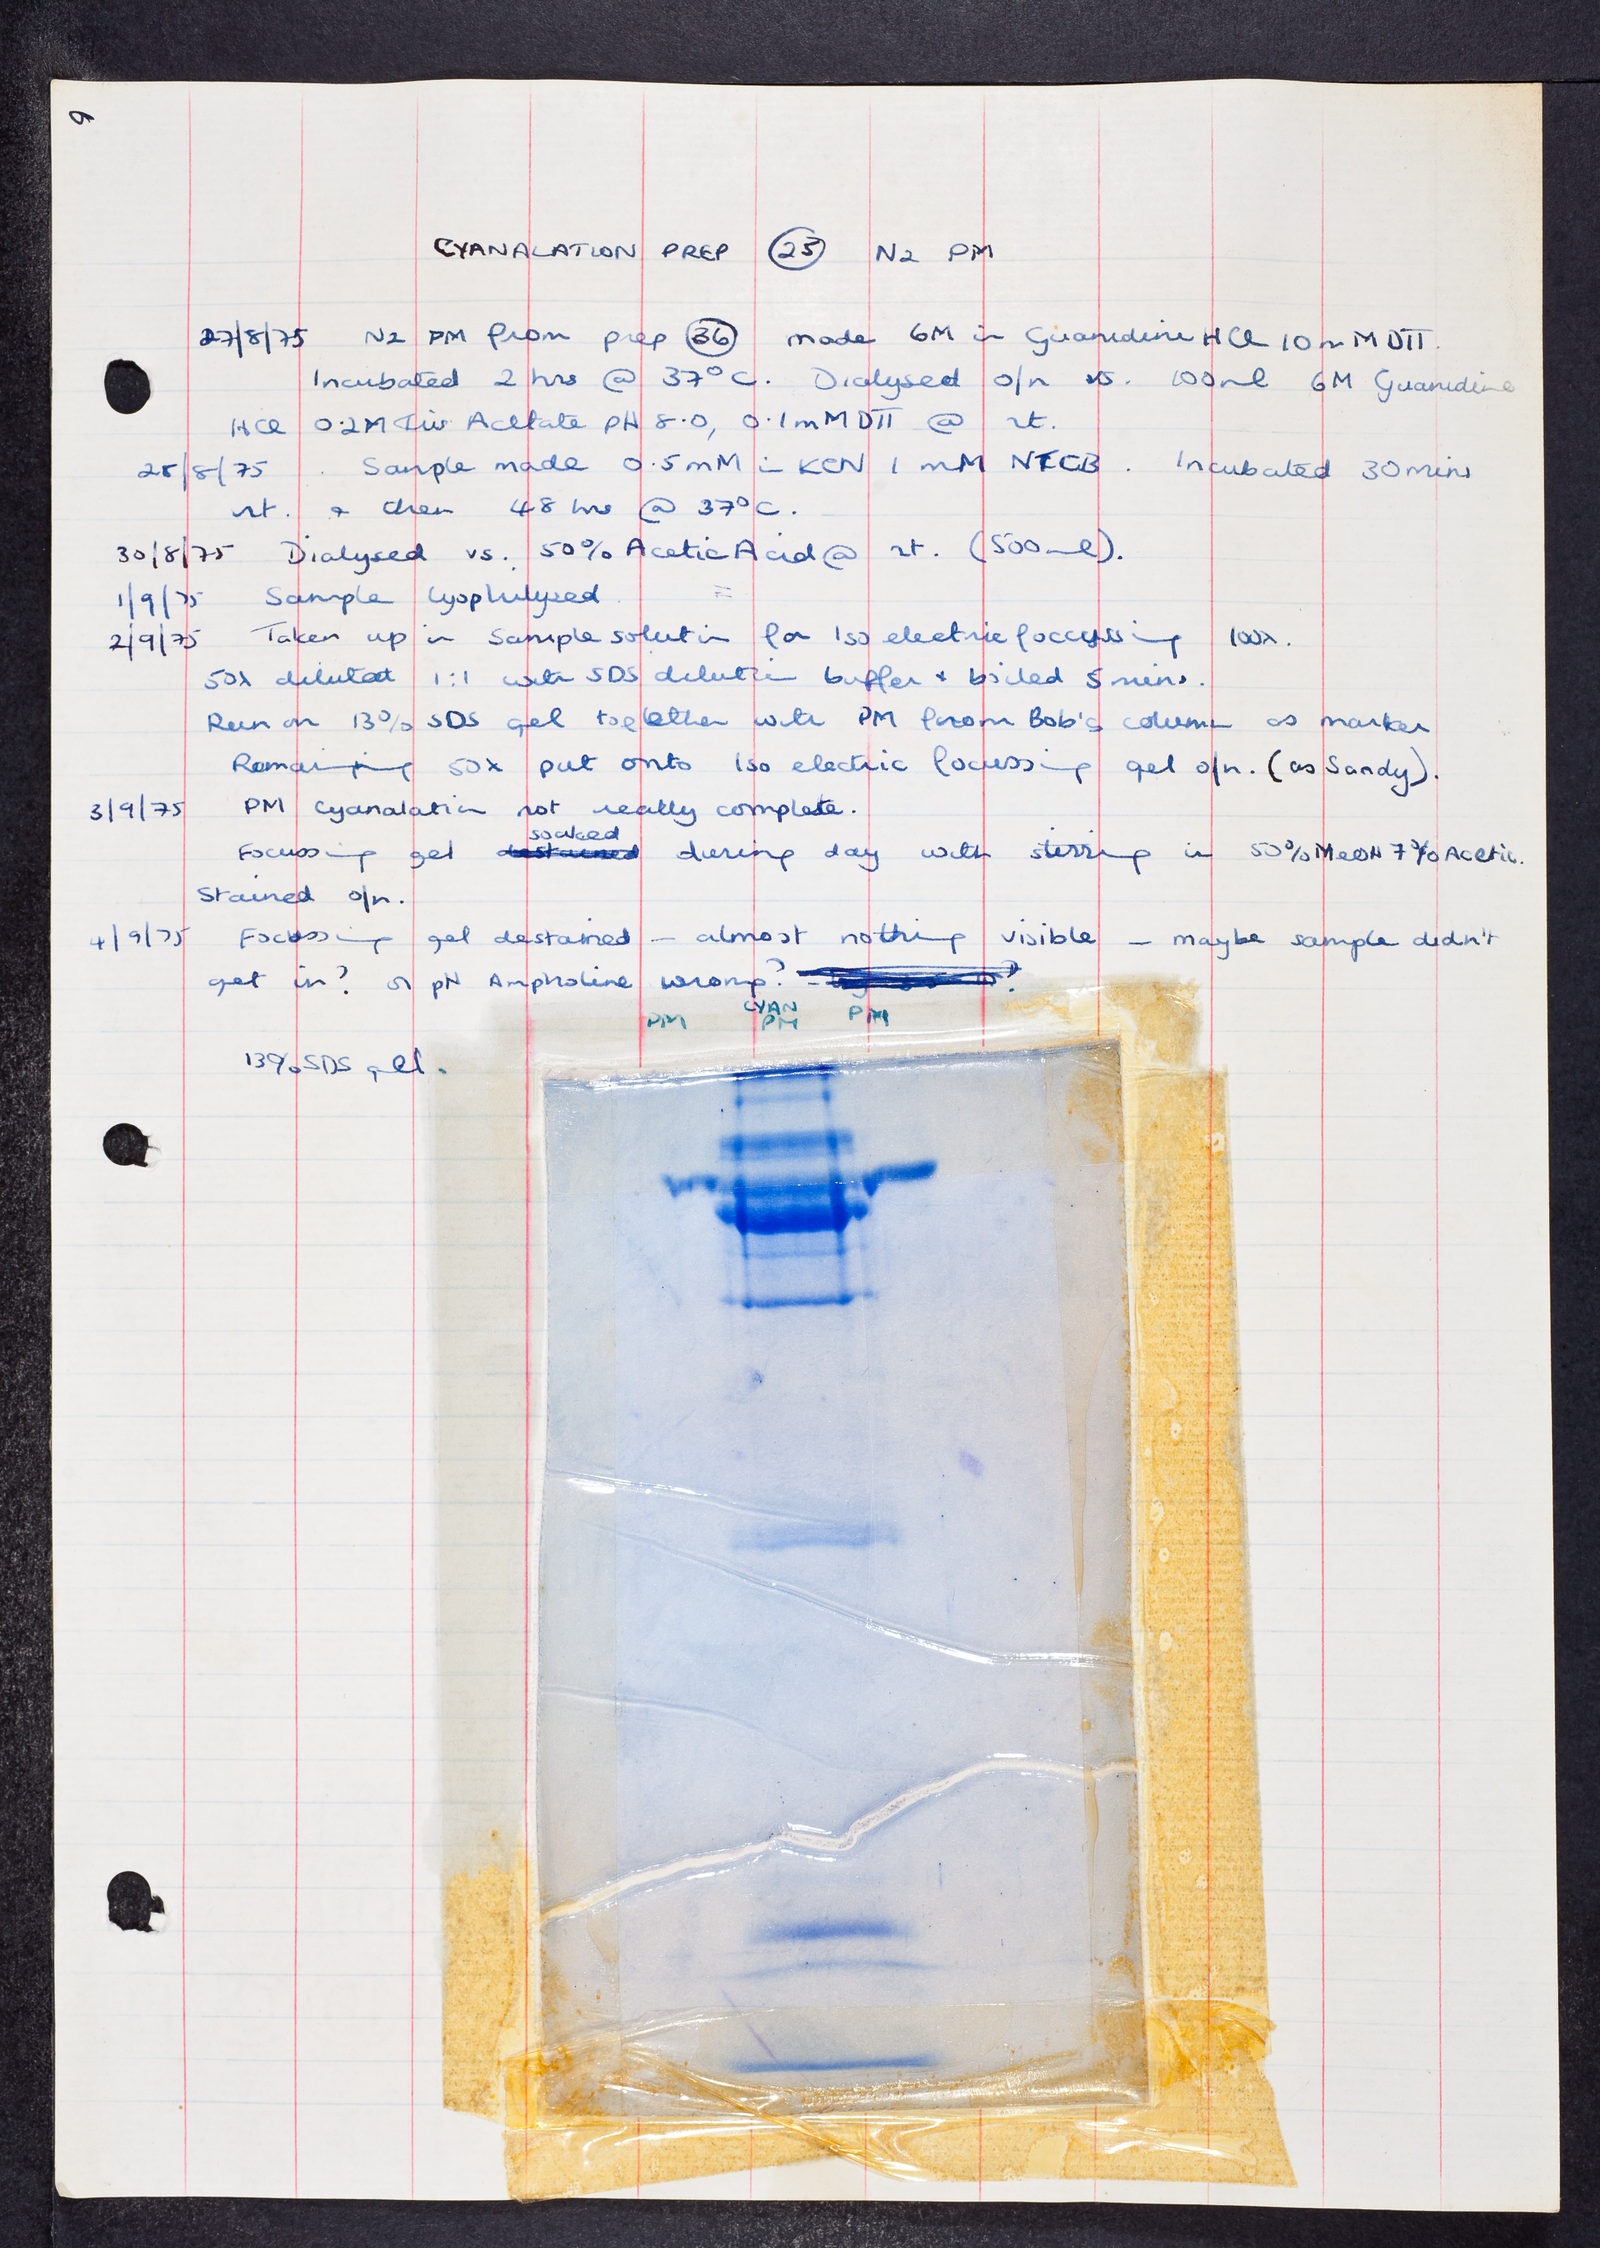 9
CYANALATION PREP 23 N2 PM
27/8/75 N2 PM from prep 36 made 6M in Guanidine HCl 10mM DTT.
Incubated 2 hrs @ 37°C. Dialysed o/n vs. 100ml 6M Guanidine
HCl 0.2M Tris Acetate pH 8.0, 0.1mM DTT @ rt.
28/8/75 . Sample made 0.5mM in KCN 1 mM NTCB. Incubated 30mins
rt. & then 48 hrs @ 37°C.
30/8/75 Dialysed vs. 50% Acetic Acid @ rt. (500ml).
1/9/75 Sample lyophilyzed
2/9/75 Taken up in sample solution for Iso electric focussing 100λ.
50λ diluted 1:1 with SDS dilution buffer & boiled 5 mins.
Run on 13% SDS gel together with PM from Bob's column as marker
Remaining 50λ put onto Iso electric focussing gel o/n. (as Sandy).
3/9/75 PM Cyanalation not really complete.
Focussing gel destained soaked during day with stirring in 50% MeOH 7% Acetic.
Stained o/n.
4/9/75 Focussing gel destained - almost nothing visible - maybe sample didn't
get in? or pH Ampholine wrong?
PM CYAN PM PM
13% SDS gel.